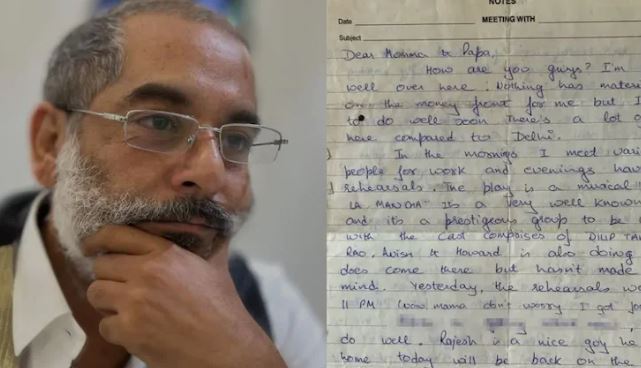 NOTES
Date MEETING WITH
Subject
Dear Momma & Papa,
How are you guys? I'm
well over here. Nothing has mater
on the money front for me but I
to do well soon. There's a lot o
here compared to Delhi.
In the mornings I meet vari
people for work and evenings hav
rehearsals. The play is a musical
LA MANCHA" Its a very well known
and its a prestigious group to be
with the cast comprises of DILIP TAH
Rao. Avish & Howard is also doing
does come there but hasn't made
mind. Yesterday, the rehearsals we
11 PM (wow mama don't worry I got
do well. Rajesh is a nice guy he
home today will be back on the